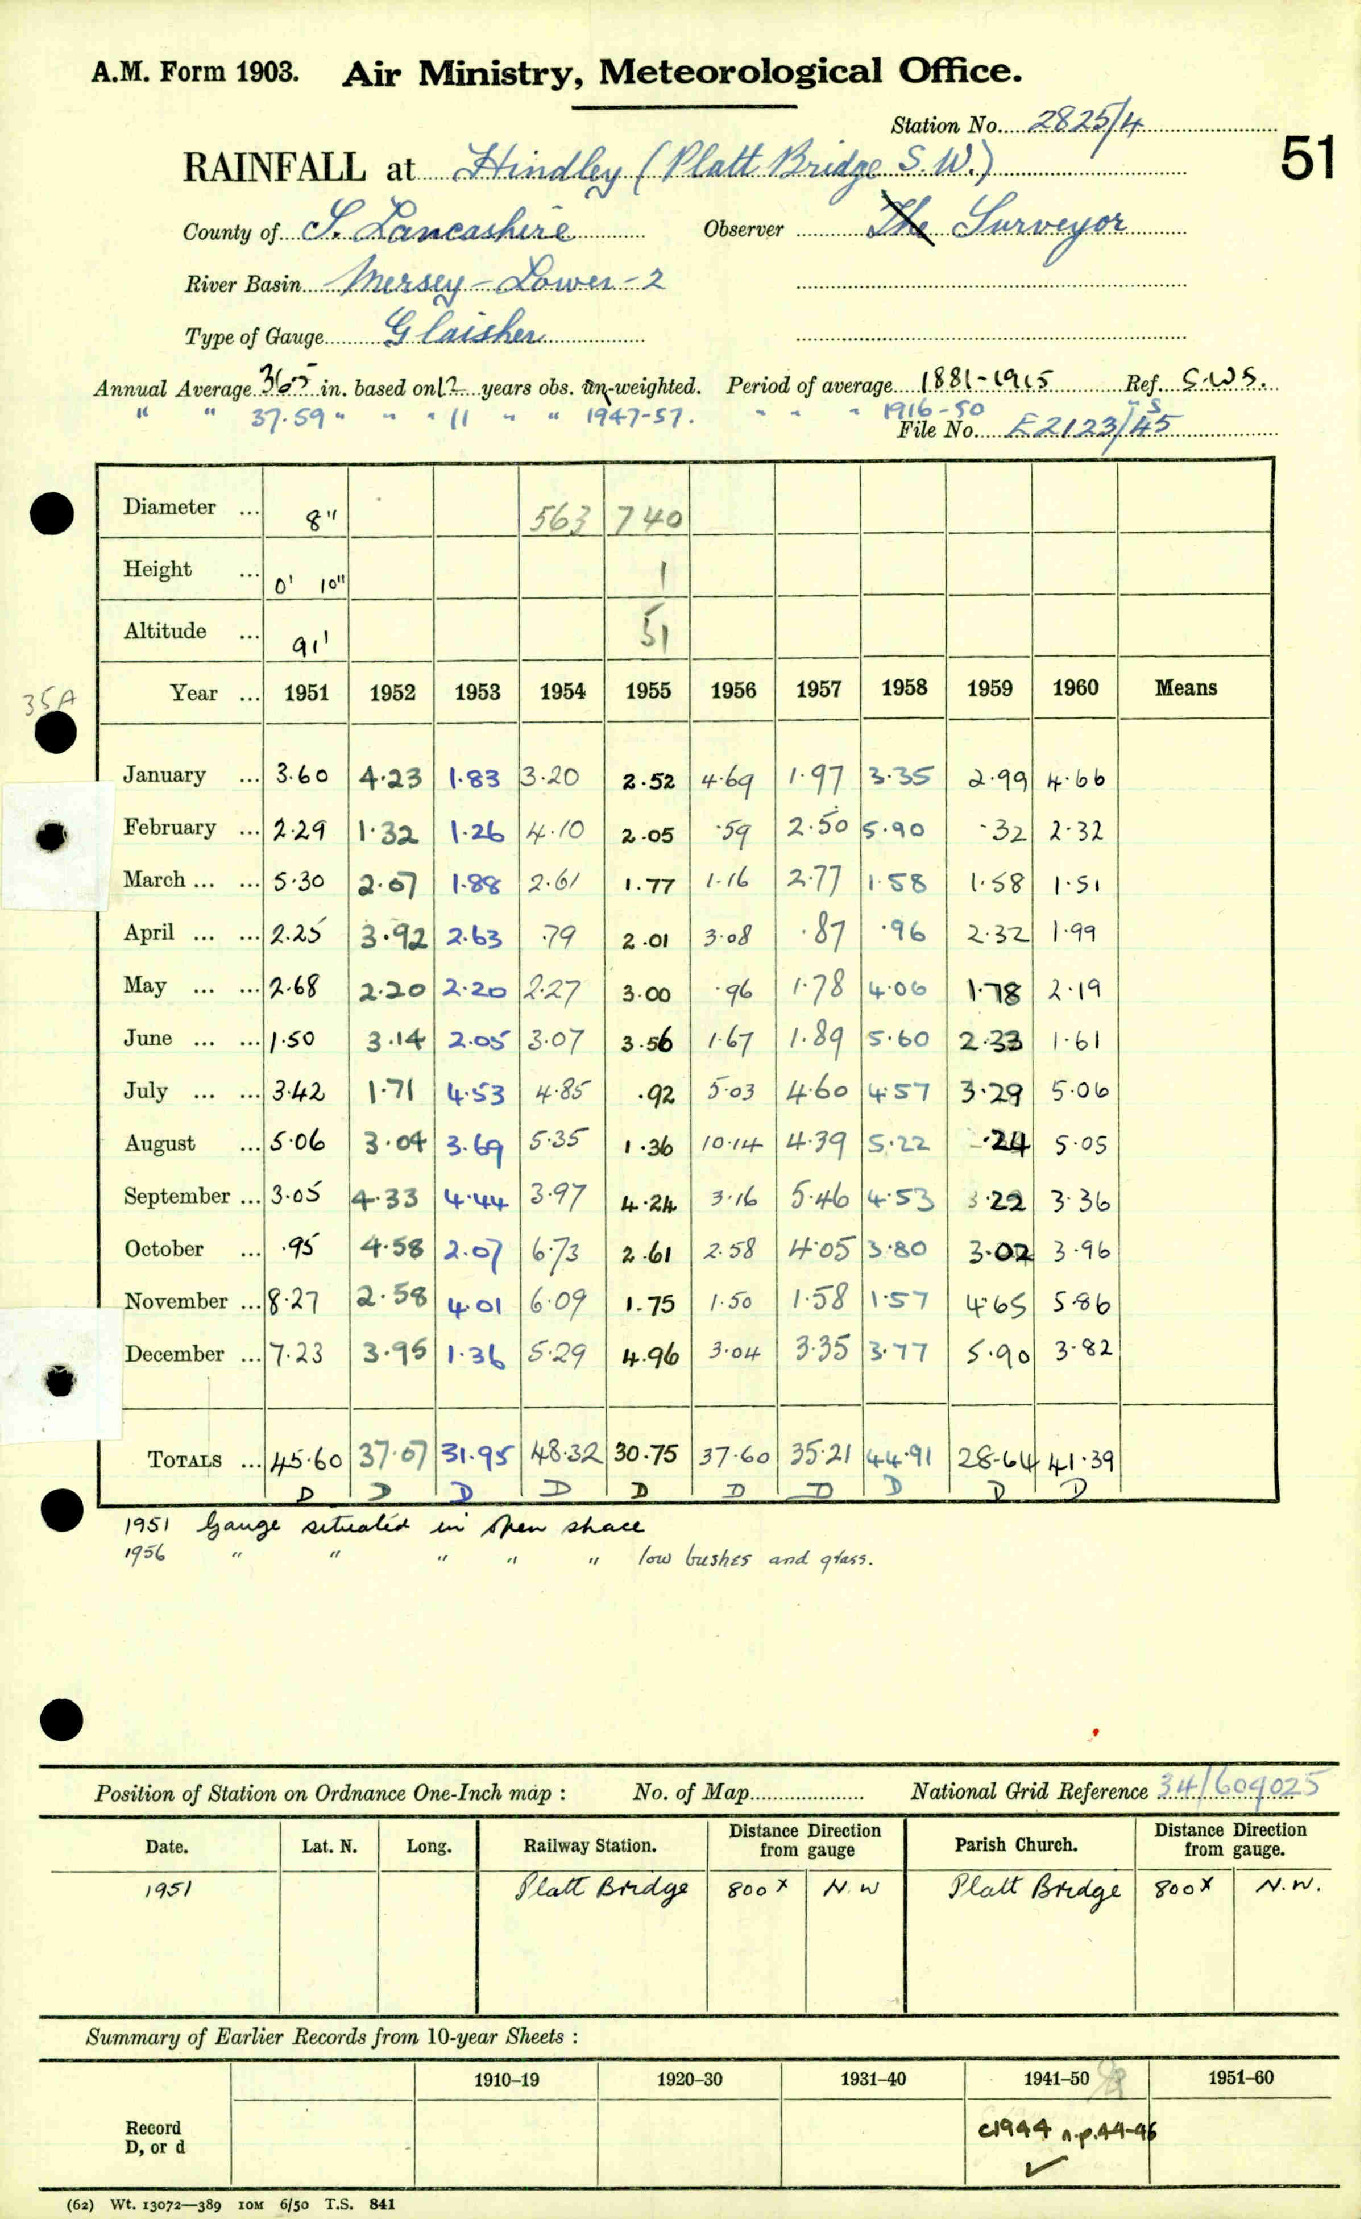 A.M. Form 1903. Air Ministry, Meteorological Office.
Station No. 2825/4
51
RAINFALL at Hindley (Platt Bridge S.W.)
County of S. Lancashire Observer The Surveyor
River Basin Mersey - Lower - 2
Type of Gauge Glaisher
Annual Average 36.5 in. based on 12 years obs. un-weighted. Period of average 1881-1915 Ref. S.W.S.
" " 37.59 " " " 11 " " 1947-57. " " " 1916-50 " S
File No. E2123/45
Diameter ... 8" 563 740
Height ... 0' 10" 1
Altitude ... 91' 51
35A
Year ... 1951 1952 1953 1954 1955 1956 1957 1958 1959 1960 Means
January ... 3.60 4.23 1.83 3.20 2.52 4.69 1.97 3.35 2.99 4.66
February ... 2.29 1.32 1.26 4.10 2.05 .59 2.50 5.90 .32 2.32
March ... ... 5.30 2.07 1.88 2.61 1.77 1.16 2.77 1.58 1.58 1.51
April ... ... 2.25 3.92 2.63 .79 2.01 3.08 .87 .96 2.32 1.99
May ... ... 2.68 2.20 2.20 2.27 3.00 .96 1.78 4.06 1.78 2.19
June ... ... 1.50 3.14 2.05 3.07 3.56 1.67 1.89 5.60 2.33 1.61
July ... ... 3.42 1.71 4.53 4.85 .92 5.03 4.60 4.57 3.29 5.06
August ... 5.06 3.04 3.69 5.35 1.36 10.14 4.39 5.22 .24 5.05
September ... 3.05 4.33 4.44 3.97 4.24 3.16 5.46 4.53 3.22 3.36
October ... .95 4.58 2.07 6.73 2.61 2.58 4.05 3.80 3.02 3.96
November ... 8.27 2.58 4.01 6.09 1.75 1.50 1.58 1.57 4.65 5.86
December ... 7.23 3.95 1.36 5.29 4.96 3.04 3.35 3.77 5.90 3.82
TOTALS ... 45.60 37.07 31.95 48.32 30.75 37.60 35.21 44.91 28.64 41.39
D D D D D D D D D D
1951 Gauge situated in open space
1956 " " " " " low bushes and glass.
Position of Station on Ordnance One-Inch map : No. of Map National Grid Reference 34/609025
Date. Lat. N. Long. Railway Station. Distance Direction from gauge Parish Church. Distance Direction from gauge.
1951 Platt Bridge 800x N.W Platt Bridge 800x N.W.
Summary of Earlier Records from 10-year Sheets :
1910–19 1920–30 1931–40 1941–50 1951–60
Record
D, or d
c1944 n.p.44-46
✓
(62) Wt. 13072—389 10M 6/50 T.S. 841